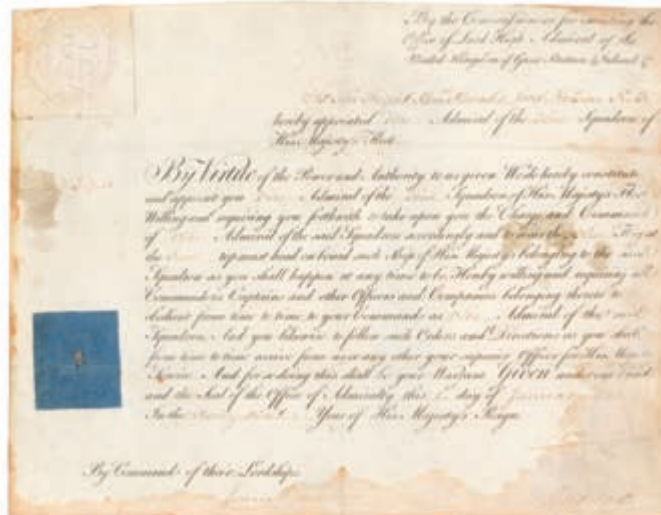 By the Commissioners for executing the
Office of Lord High Admiral of the
United Kingdom of Great Britain & Ireland &c
hereby appointed Admiral of the Squadron of
His Majesty's Fleet
By Virtue of the Power and Authority to us given We do hereby constitute
and appoint you Admiral of the Squadron of His Majesty's Fleet
Willing and requiring you forthwith to take upon you the Charge and Command
of Admiral of the said Squadron accordingly and to wear the Flag at
the topmast head on board such Ship of His Majesty's belonging to the said
Squadron as you shall happen at any time to be Hereby willing and requiring all
Commanders Captains and other Officers and Companies belonging thereto to
Obedient from time to time to your Commands as Admiral of the said
Squadron And you likewise to follow such Orders and Directions as you shall
from time to time receive from us or any other your superior Officer for His Majesty's
Service And for so doing this shall be your Warrant Given under our hands
and the Seal of the Office of Admiralty this day of
In the Year of His Majesty's Reign
By Command of their Lordships